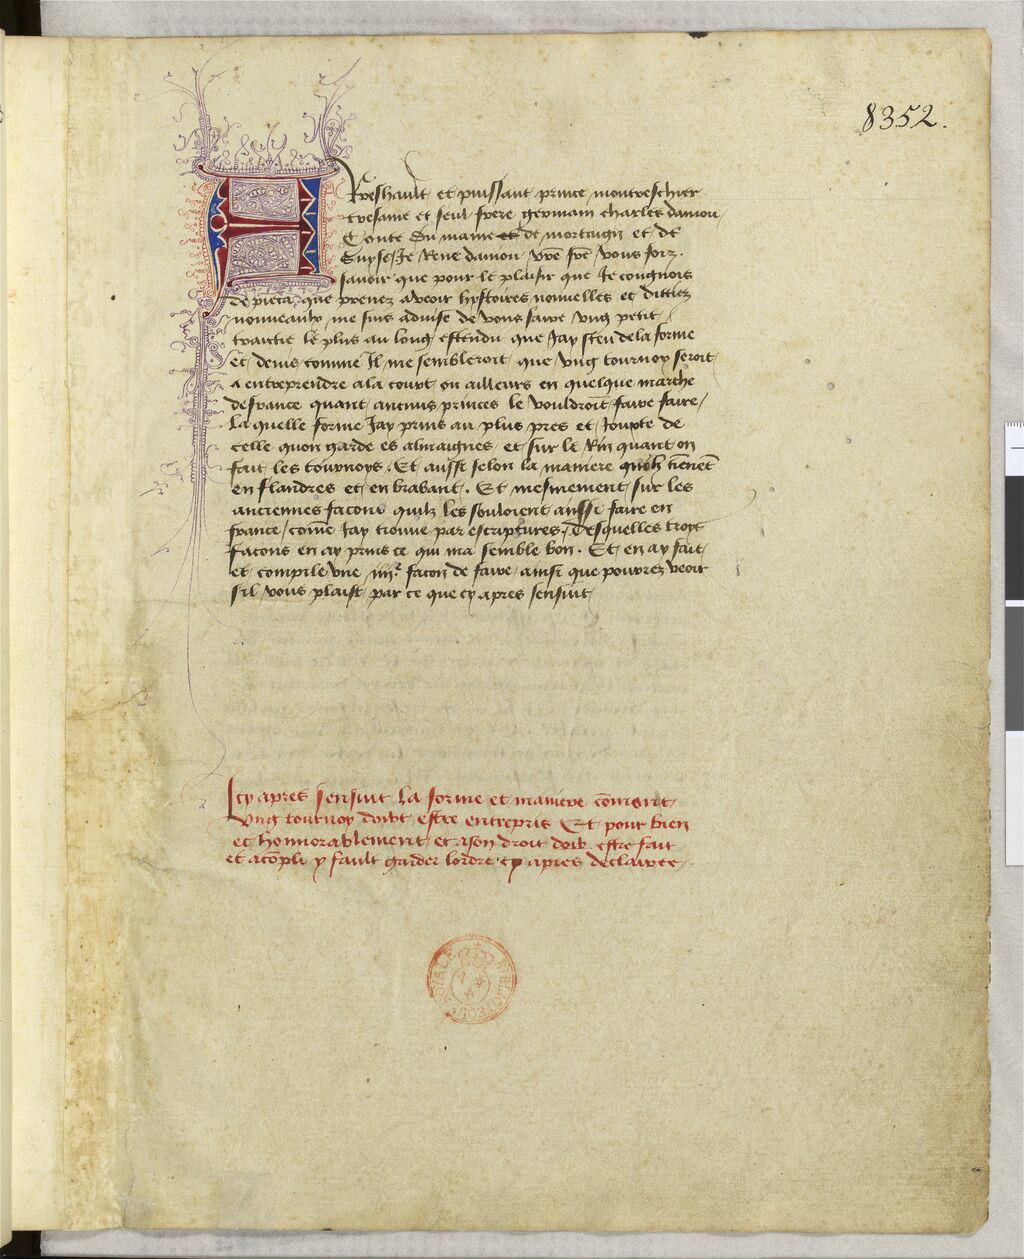 8352.
Treshault et puissant prince montreschier
tresame et seul frere germain charles daniou
Conte du maine et de mortaign et de
Guyse / Je Rene daniou vrē frē vous foiz
savoir que pour le plaisir que Je congnois
de pieca que prenez a veoir hystoires nouvelles et dittiez
nouveaulx me suis advise de vous faire ung petit
traictie le plus au long estendu que Jay sceu de la forme
et devis comme Il me sembleroit que ung tournoy seroit
a entreprendre a la court ou ailleurs en quelque marche
defrance quant aucuns princes le vouldroit faire faire /
La quelle forme Jay prins au plus pres et Joupte de
celle quon garde es almaignes et sur le Rin quant on
fait les tournoys . Et aussi selon la maniere quilz tiēnēt
en flandres et en brabant . Et mesmement sur les
anciennes facons quilz les souloient aussi faire en
france / cōme Jay trouve par escriptures . Desquelles troys
facons en ay prins ce qui ma semble bon . Et en ay fait
et compile une iiij.e facon de faire ainsi que pourrez veoir
sil vous plaist par ce que cy apres sensuit
Icy apres sensuit la forme et maniere cōment
Ung tournoy doibt estre entrepris Et pour bien
et honnorablement et a son droit doib estre fait
et acōpli y fault garder lordre cy apres declairee
BIBLIOTEQUE ROYALE